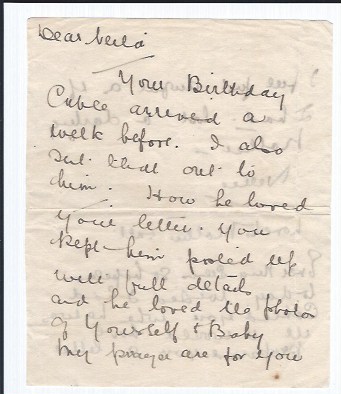 Dear Neila
Your Birthday
Cable arrived a
week before. I also
sent that out to
him. How he loved
your letter. You
kept him posted up
with full details
and he loved the photos
of Yourself & Baby
my prayer are for you